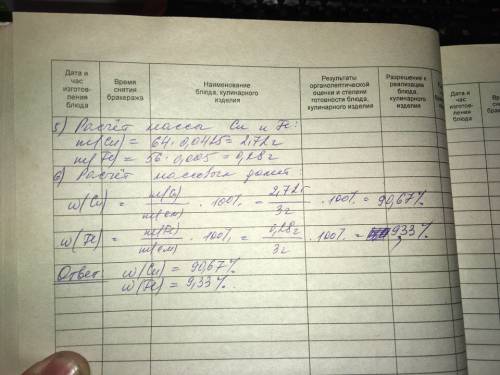 Дата и час изготов-ления блюда
Время снятия бракеража
Наименование блюда, кулинарного изделия
Результаты органолептической оценки и степени готовности блюда, кулинарного изделия
Разрешение к реализации блюда, кулинарного изделия
5) Расчёт масса Cu и Fe:
m(Cu) = 64 · 0,0425 = 2,72г
m(Fe) = 56 · 0,005 = 0,28г
6) Расчёт массовых долей:
w(Cu) = m(Cu)/m(см) · 100% = 2,72г/3г · 100% = 90,67%
w(Fe) = m(Fe)/m(см) · 100% = 0,28г/3г · 100% = 9,33%
Ответ: w(Cu) = 90,67%
w(Fe) = 9,33%.